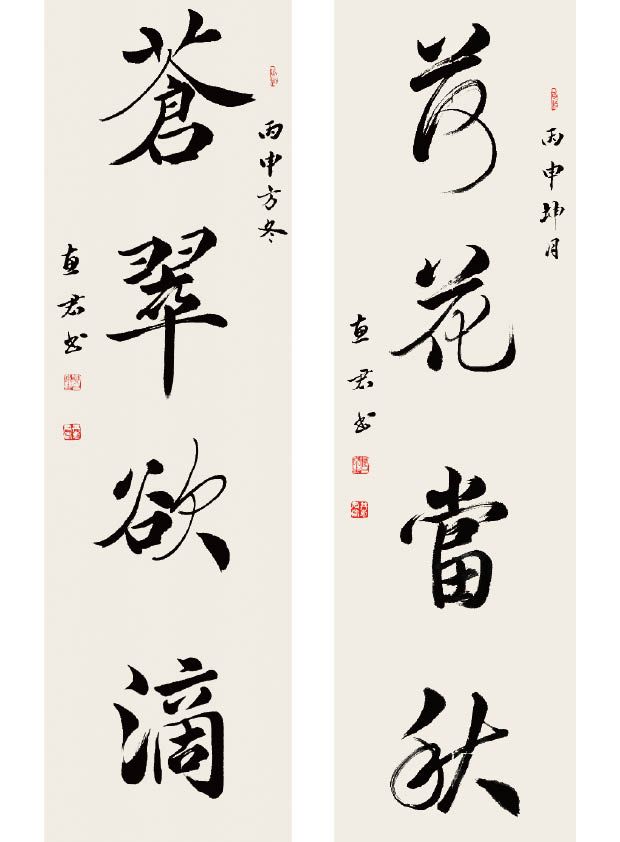 丙申坤月
荷花當秋
惠君书
丙申方冬
蒼翠欲滴
惠君书